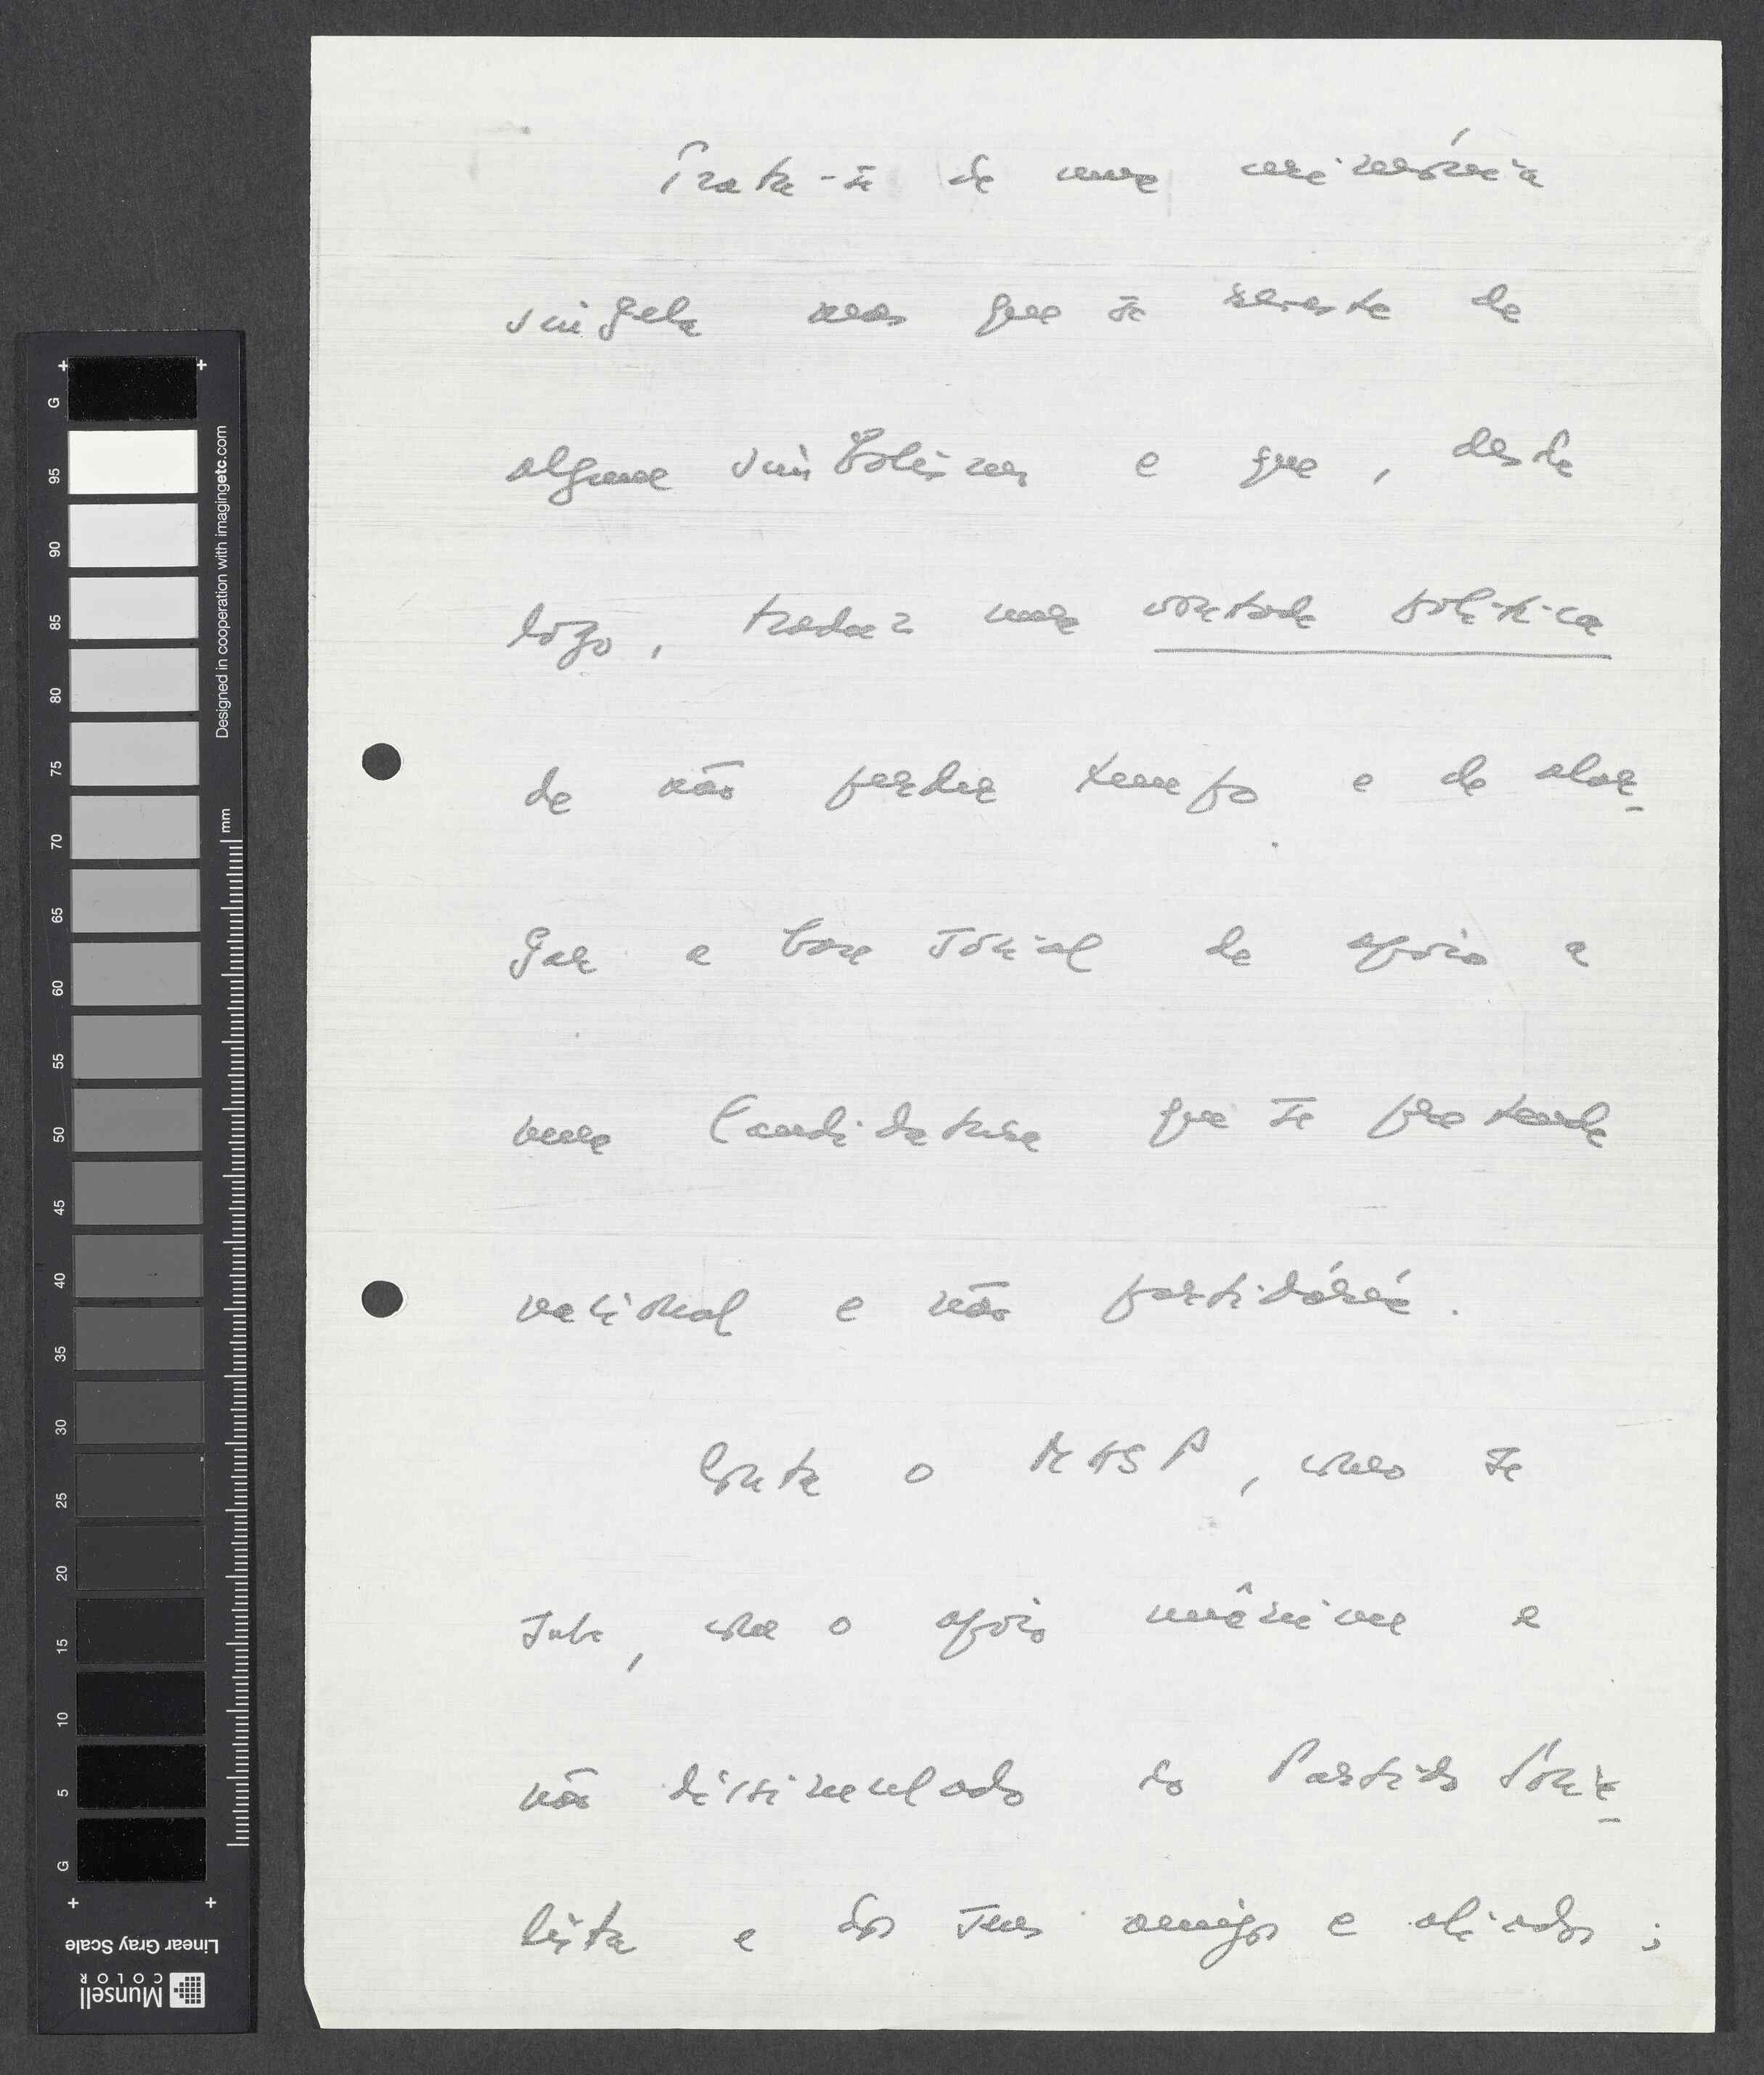 Trata-se de uma cerimónia
singela mas que se reveste de
algum simbolismo e que, desde
logo, traduz uma vontade política
de não perder tempo e de alar-
gar a base social de apoio a
uma Candidatura que se pretende
nacional e não partidária.
Conta o MASP, como se
sabe, com o apoio unânime e
não dissimulado do Partido Socia-
lista e dos seus amigos e aliados;
G
95
90
85
80
75
70
65
60
55
50
45
40
35
30
25
20
15
10
5
G
Designed in cooperation with imagingetc.com
mm
Linear Gray Scale
Munsell
COLOR